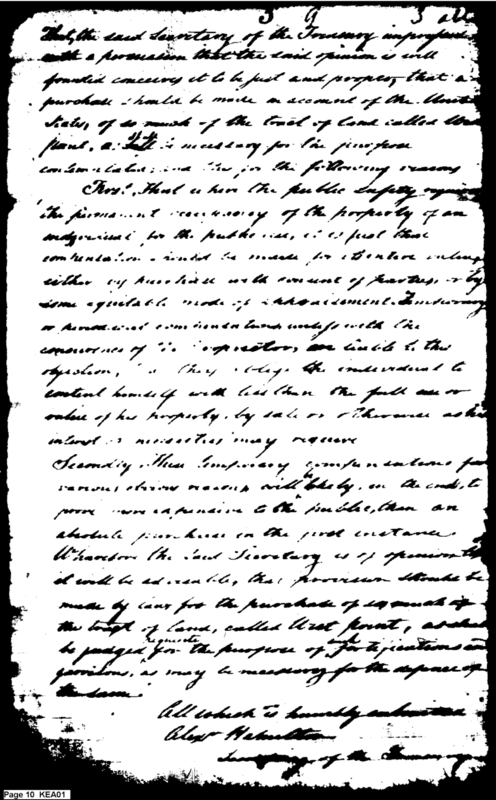 3 9 3
That, the said Secretary of the Treasury impressed
with a persuasion that the said opinion is well
founded conceives it to be just and proper, that a
purchase should be made on account of the United
States, of so much of the tract of land called West
point, as is necessary for the purpose
contemplated; and this for the following reasons
First, That where the public safety requires
the permanent occupancy of the property of an
individual, for the public use, it is just that
compensation should be made for its entire value,
either by purchase with consent of parties or by
some equitable mode of appraisement. Temporary
or periodical compensations unless with the
concurrence of the proprietors, are liable to this
objection, they oblige the individual to
content himself with less than the full use or
value of his property, by sale or otherwise as his
interest or necessities may require
Secondly These temporary compensations for
various obvious reasons will likely, in the end, to
prove more expensive to the public, than an
absolute purchase in the first instance
Wherefore the said Secretary is of opinion
it will be adviseable, that provision should be
made by law for the purchase of so much of
the tract of land, called West point, as shall
be judged requisite for the purpose of such fortifications and
garrisons, as may be necessary for the defence of
the same
All which is humbly submitted
Alexr Hamilton
Secretary of the Treasury
Page 10 KEA01